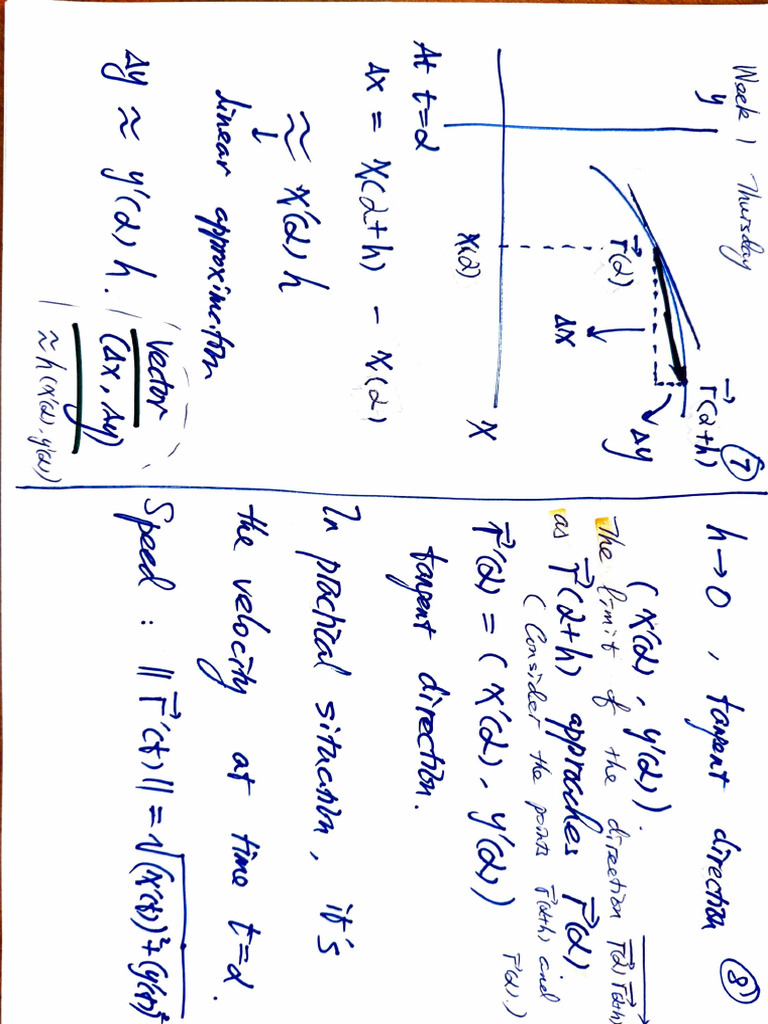 Week 1 Thursday
⑦
y
r⃗(α+h)
r⃗(α)
Δy
Δx
x(α)
x
At t=α
Δx = x(α+h) - x(α)
≈ x'(α) h
↓
linear approximation
Δy ≈ y'(α) h.
vector
(Δx, Δy)
≈ h(x'(α), y'(α))
h→0, tangent direction ⑧
(x'(α), y'(α)).
The limit of the direction r⃗(α) r⃗(α+h)
as r⃗(α+h) approaches r⃗(α).
(Consider the points r⃗(α+h) and
r⃗(α).)
r⃗'(α) = (x'(α), y'(α))
tangent direction.
In practical situation, it's
the velocity at time t=α.
Speed: ||r⃗'(t)|| = √(x'(t))²+(y'(t))²